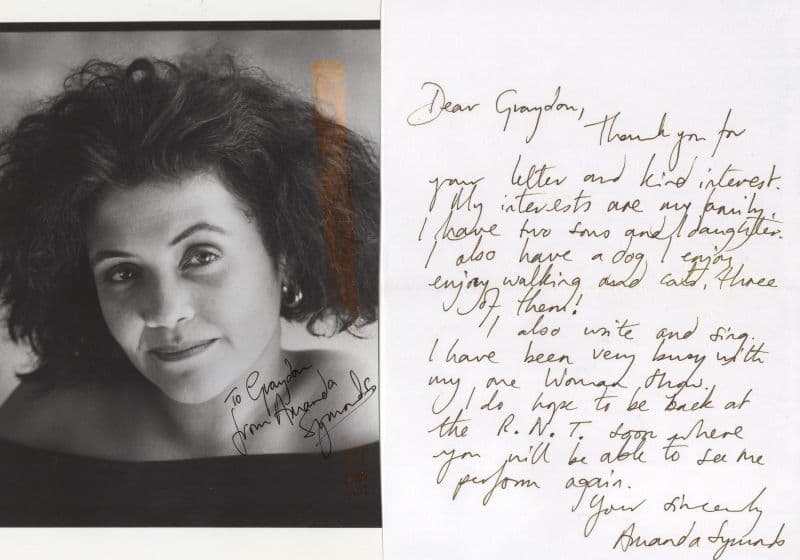 To Graydon
from Amanda
Symonds
Dear Graydon,
Thank you for
your letter and kind interest.
My interests are my family,
I have two sons and 1 daughter.
I also have a dog I enjoy
enjoy walking and cats, three
of them!
I also write and sing.
I have been very busy with
my one Woman show.
I do hope to be back at
the R.N.T. soon where
you will be able to see me
perform again.
Your sincerely
Amanda Symonds